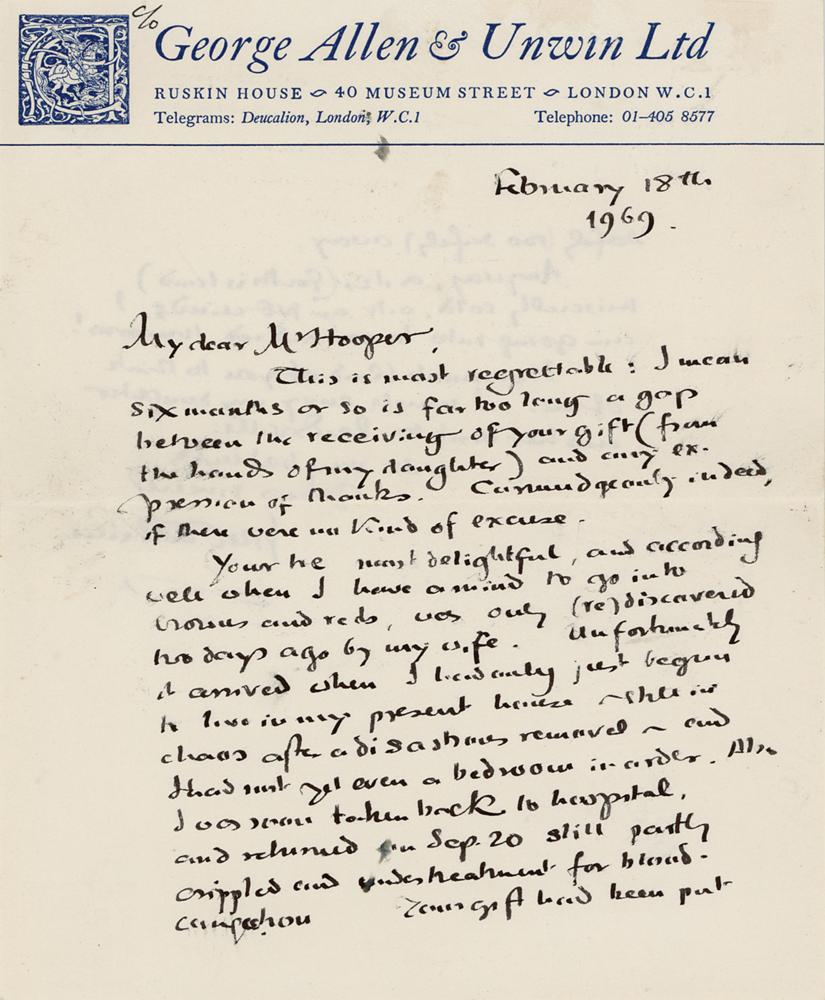 c/o
George Allen & Unwin Ltd
RUSKIN HOUSE 40 MUSEUM STREET LONDON W.C.1
Telegrams: Deucalion, London, W.C.1 Telephone: 01-405 8577
February 18th
1969.
My dear Mr Hooper,
This is most regrettable: I mean
six months or so is far too long a gap
between the receiving of your gift (from
the hands of my daughter) and any ex-
pression of thanks. Curmudgeonly indeed,
if there were no kind of excuse.
Your tie most delightful, and according
well when I have a mind to go into
browns and reds, was only (re)discovered
two days ago by my wife. Unfortunately
it arrived when I had only just begun
to live in my present house ~ still in
chaos after a disastrous removal ~ and
I had not yet even a bedroom in order. Also
I was soon taken back to hospital,
and returned on Sep. 20 still partly
crippled and under treatment for blood-
congestion Your gift had been put